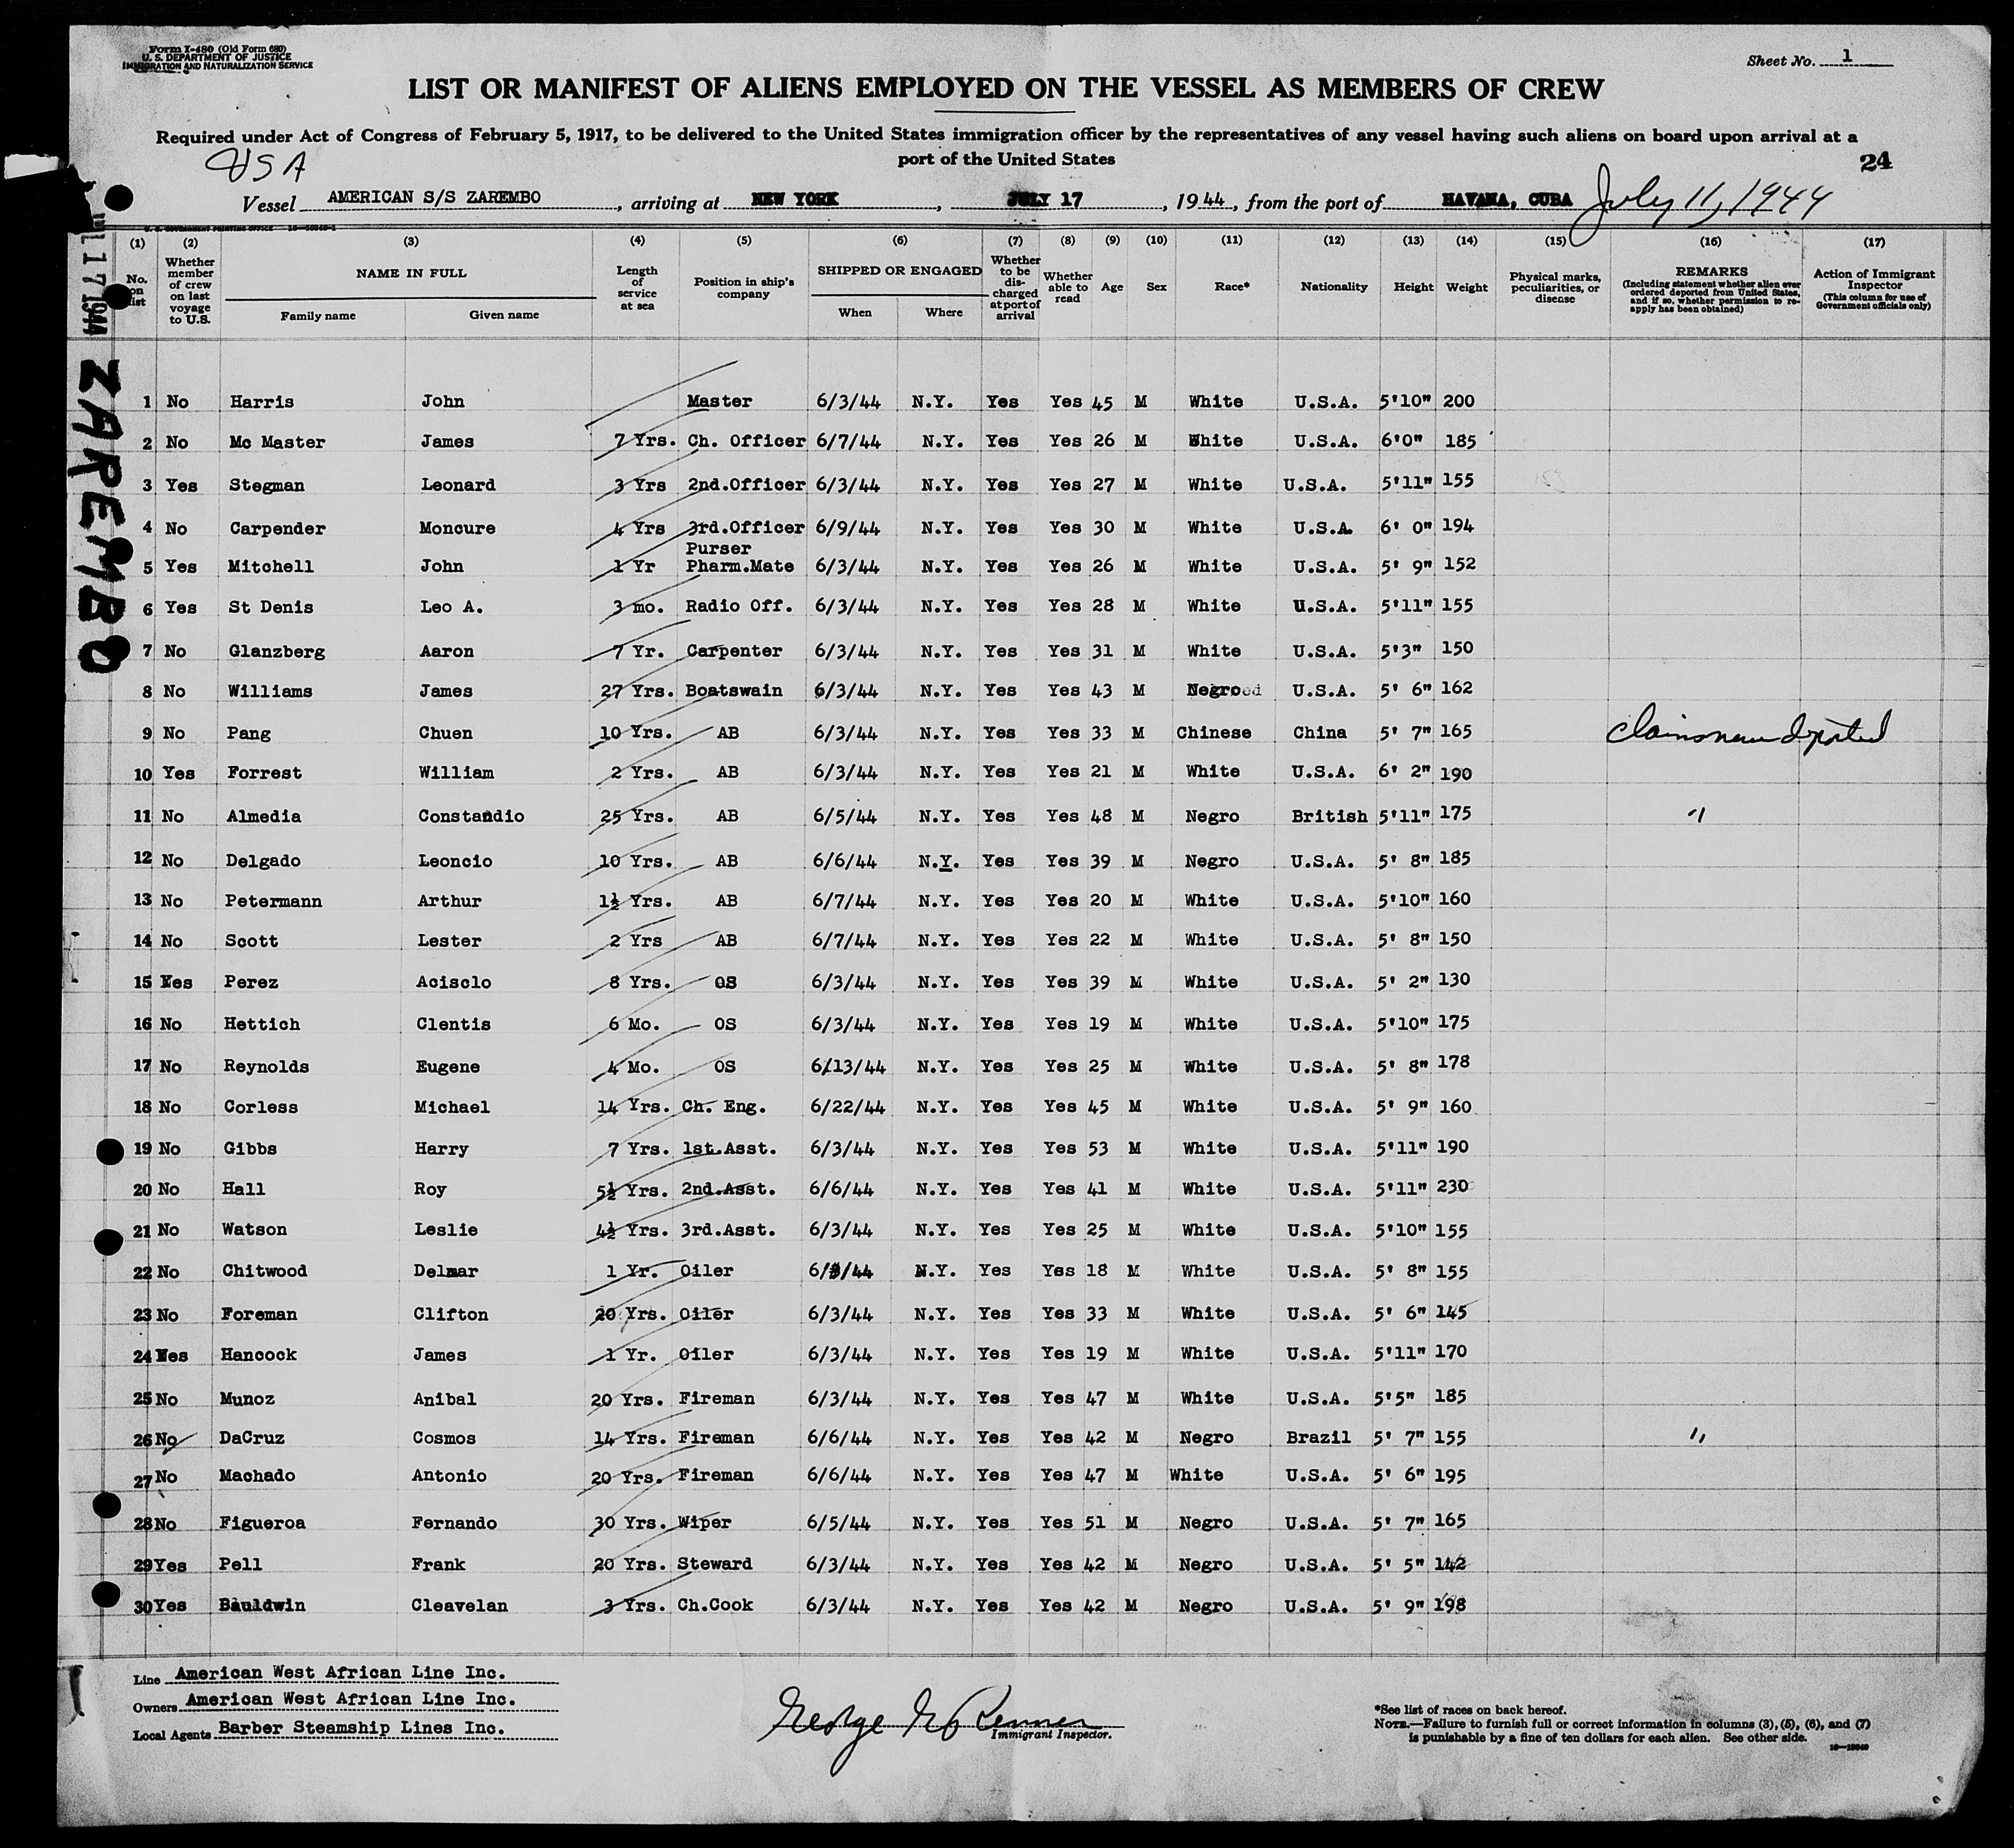 Form I-480 (Old Form 680)
U. S. DEPARTMENT OF JUSTICE
IMMIGRATION AND NATURALIZATION SERVICE
Sheet No. 1
LIST OR MANIFEST OF ALIENS EMPLOYED ON THE VESSEL AS MEMBERS OF CREW
Required under Act of Congress of February 5, 1917, to be delivered to the United States immigration officer by the representatives of any vessel having such aliens on board upon arrival at a
port of the United States
24
USA
Vessel AMERICAN S/S ZAREMBO, arriving at NEW YORK, JULY 17, 1944, from the port of HAVANA, CUBA July 11, 1944
17 1944
ZAREMBO
(1) (2) (3) (4) (5) (6) (7) (8) (9) (10) (11) (12) (13) (14) (15) (16) (17)
No. on list
Whether member of crew on last voyage to U.S.
NAME IN FULL
Family name Given name
Length of service at sea
Position in ship's company
SHIPPED OR ENGAGED
When Where
Whether to be discharged at port of arrival
Whether able to read
Age
Sex
Race*
Nationality
Height
Weight
Physical marks, peculiarities, or disease
REMARKS
(Including statement whether alien ever ordered deported from United States, and if so, whether permission to reapply has been obtained)
Action of Immigrant Inspector
(This column for use of Government officials only)
1 No Harris John Master 6/3/44 N.Y. Yes Yes 45 M White U.S.A. 5'10" 200
2 No Mc Master James 7 Yrs. Ch. Officer 6/7/44 N.Y. Yes Yes 26 M White U.S.A. 6'0" 185
3 Yes Stegman Leonard 3 Yrs 2nd.Officer 6/3/44 N.Y. Yes Yes 27 M White U.S.A. 5'11" 155
4 No Carpender Moncure 4 Yrs 3rd.Officer 6/9/44 N.Y. Yes Yes 30 M White U.S.A. 6' 0" 194
5 Yes Mitchell John 1 Yr Purser Pharm.Mate 6/3/44 N.Y. Yes Yes 26 M White U.S.A. 5' 9" 152
6 Yes St Denis Leo A. 3 mo. Radio Off. 6/3/44 N.Y. Yes Yes 28 M White U.S.A. 5'11" 155
7 No Glanzberg Aaron 7 Yr. Carpenter 6/3/44 N.Y. Yes Yes 31 M White U.S.A. 5'3" 150
8 No Williams James 27 Yrs. Boatswain 6/3/44 N.Y. Yes Yes 43 M Negro U.S.A. 5' 6" 162
9 No Pang Chuen 10 Yrs. AB 6/3/44 N.Y. Yes Yes 33 M Chinese China 5' 7" 165 claims never deported
10 Yes Forrest William 2 Yrs. AB 6/3/44 N.Y. Yes Yes 21 M White U.S.A. 6' 2" 190
11 No Almedia Constandio 25 Yrs. AB 6/5/44 N.Y. Yes Yes 48 M Negro British 5'11" 175 "
12 No Delgado Leoncio 10 Yrs. AB 6/6/44 N.Y. Yes Yes 39 M Negro U.S.A. 5' 8" 185
13 No Petermann Arthur 1½ Yrs. AB 6/7/44 N.Y. Yes Yes 20 M White U.S.A. 5'10" 160
14 No Scott Lester 2 Yrs AB 6/7/44 N.Y. Yes Yes 22 M White U.S.A. 5' 8" 150
15 Yes Perez Acisclo 8 Yrs. OS 6/3/44 N.Y. Yes Yes 39 M White U.S.A. 5' 2" 130
16 No Hettich Clentis 6 Mo. OS 6/3/44 N.Y. Yes Yes 19 M White U.S.A. 5'10" 175
17 No Reynolds Eugene 4 Mo. OS 6/13/44 N.Y. Yes Yes 25 M White U.S.A. 5' 8" 178
18 No Corless Michael 14 Yrs. Ch. Eng. 6/22/44 N.Y. Yes Yes 45 M White U.S.A. 5' 9" 160
19 No Gibbs Harry 7 Yrs. 1st.Asst. 6/3/44 N.Y. Yes Yes 53 M White U.S.A. 5'11" 190
20 No Hall Roy 5½ Yrs. 2nd.Asst. 6/6/44 N.Y. Yes Yes 41 M White U.S.A. 5'11" 230
21 No Watson Leslie 4½ Yrs. 3rd.Asst. 6/3/44 N.Y. Yes Yes 25 M White U.S.A. 5'10" 155
22 No Chitwood Delmar 1 Yr. Oiler N.Y. Yes Yes 18 M White U.S.A. 5' 8" 155
23 No Foreman Clifton 20 Yrs. Oiler 6/3/44 N.Y. Yes Yes 33 M White U.S.A. 5' 6" 145
24 Yes Hancock James 1 Yr. Oiler 6/3/44 N.Y. Yes Yes 19 M White U.S.A. 5'11" 170
25 No Munoz Anibal 20 Yrs. Fireman 6/3/44 N.Y. Yes Yes 47 M White U.S.A. 5'5" 185
26 No DaCruz Cosmos 14 Yrs. Fireman 6/6/44 N.Y. Yes Yes 42 M Negro Brazil 5' 7" 155 "
27 No Machado Antonio 20 Yrs. Fireman 6/6/44 N.Y. Yes Yes 47 M White U.S.A. 5' 6" 195
28 No Figueroa Fernando 30 Yrs. Wiper 6/5/44 N.Y. Yes Yes 51 M Negro U.S.A. 5' 7" 165
29 Yes Pell Frank 20 Yrs. Steward 6/3/44 N.Y. Yes Yes 42 M Negro U.S.A. 5' 5" 142
30 Yes Bauldwin Cleavelan 3 Yrs. Ch.Cook 6/3/44 N.Y. Yes Yes 42 M Negro U.S.A. 5' 9" 198
Line American West African Line Inc.
Owners American West African Line Inc.
Local Agents Barber Steamship Lines Inc.
George Renner
Immigrant Inspector.
*See list of races on back hereof.
NOTE.—Failure to furnish full or correct information in columns (3), (5), (6), and (7)
is punishable by a fine of ten dollars for each alien. See other side.